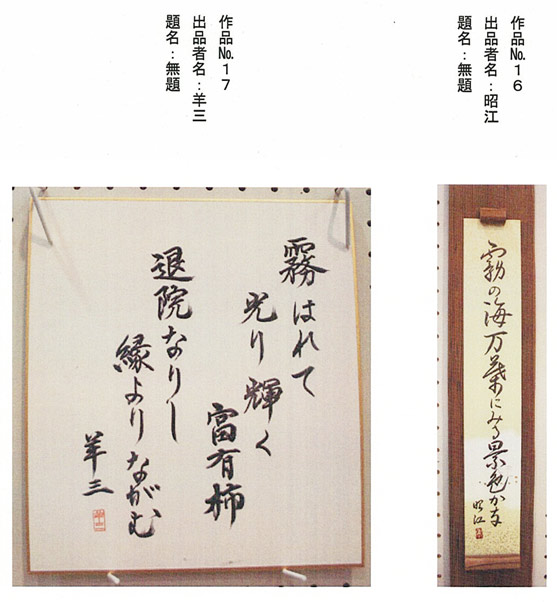 作品№１６
出品者名：昭江
題名：無題
霧の海万葉にみる景色かな
昭江
作品№１７
出品者名：羊三
題名：無題
霧はれて
光り輝く
富有柿
退院なりし
縁よりながむ
羊三